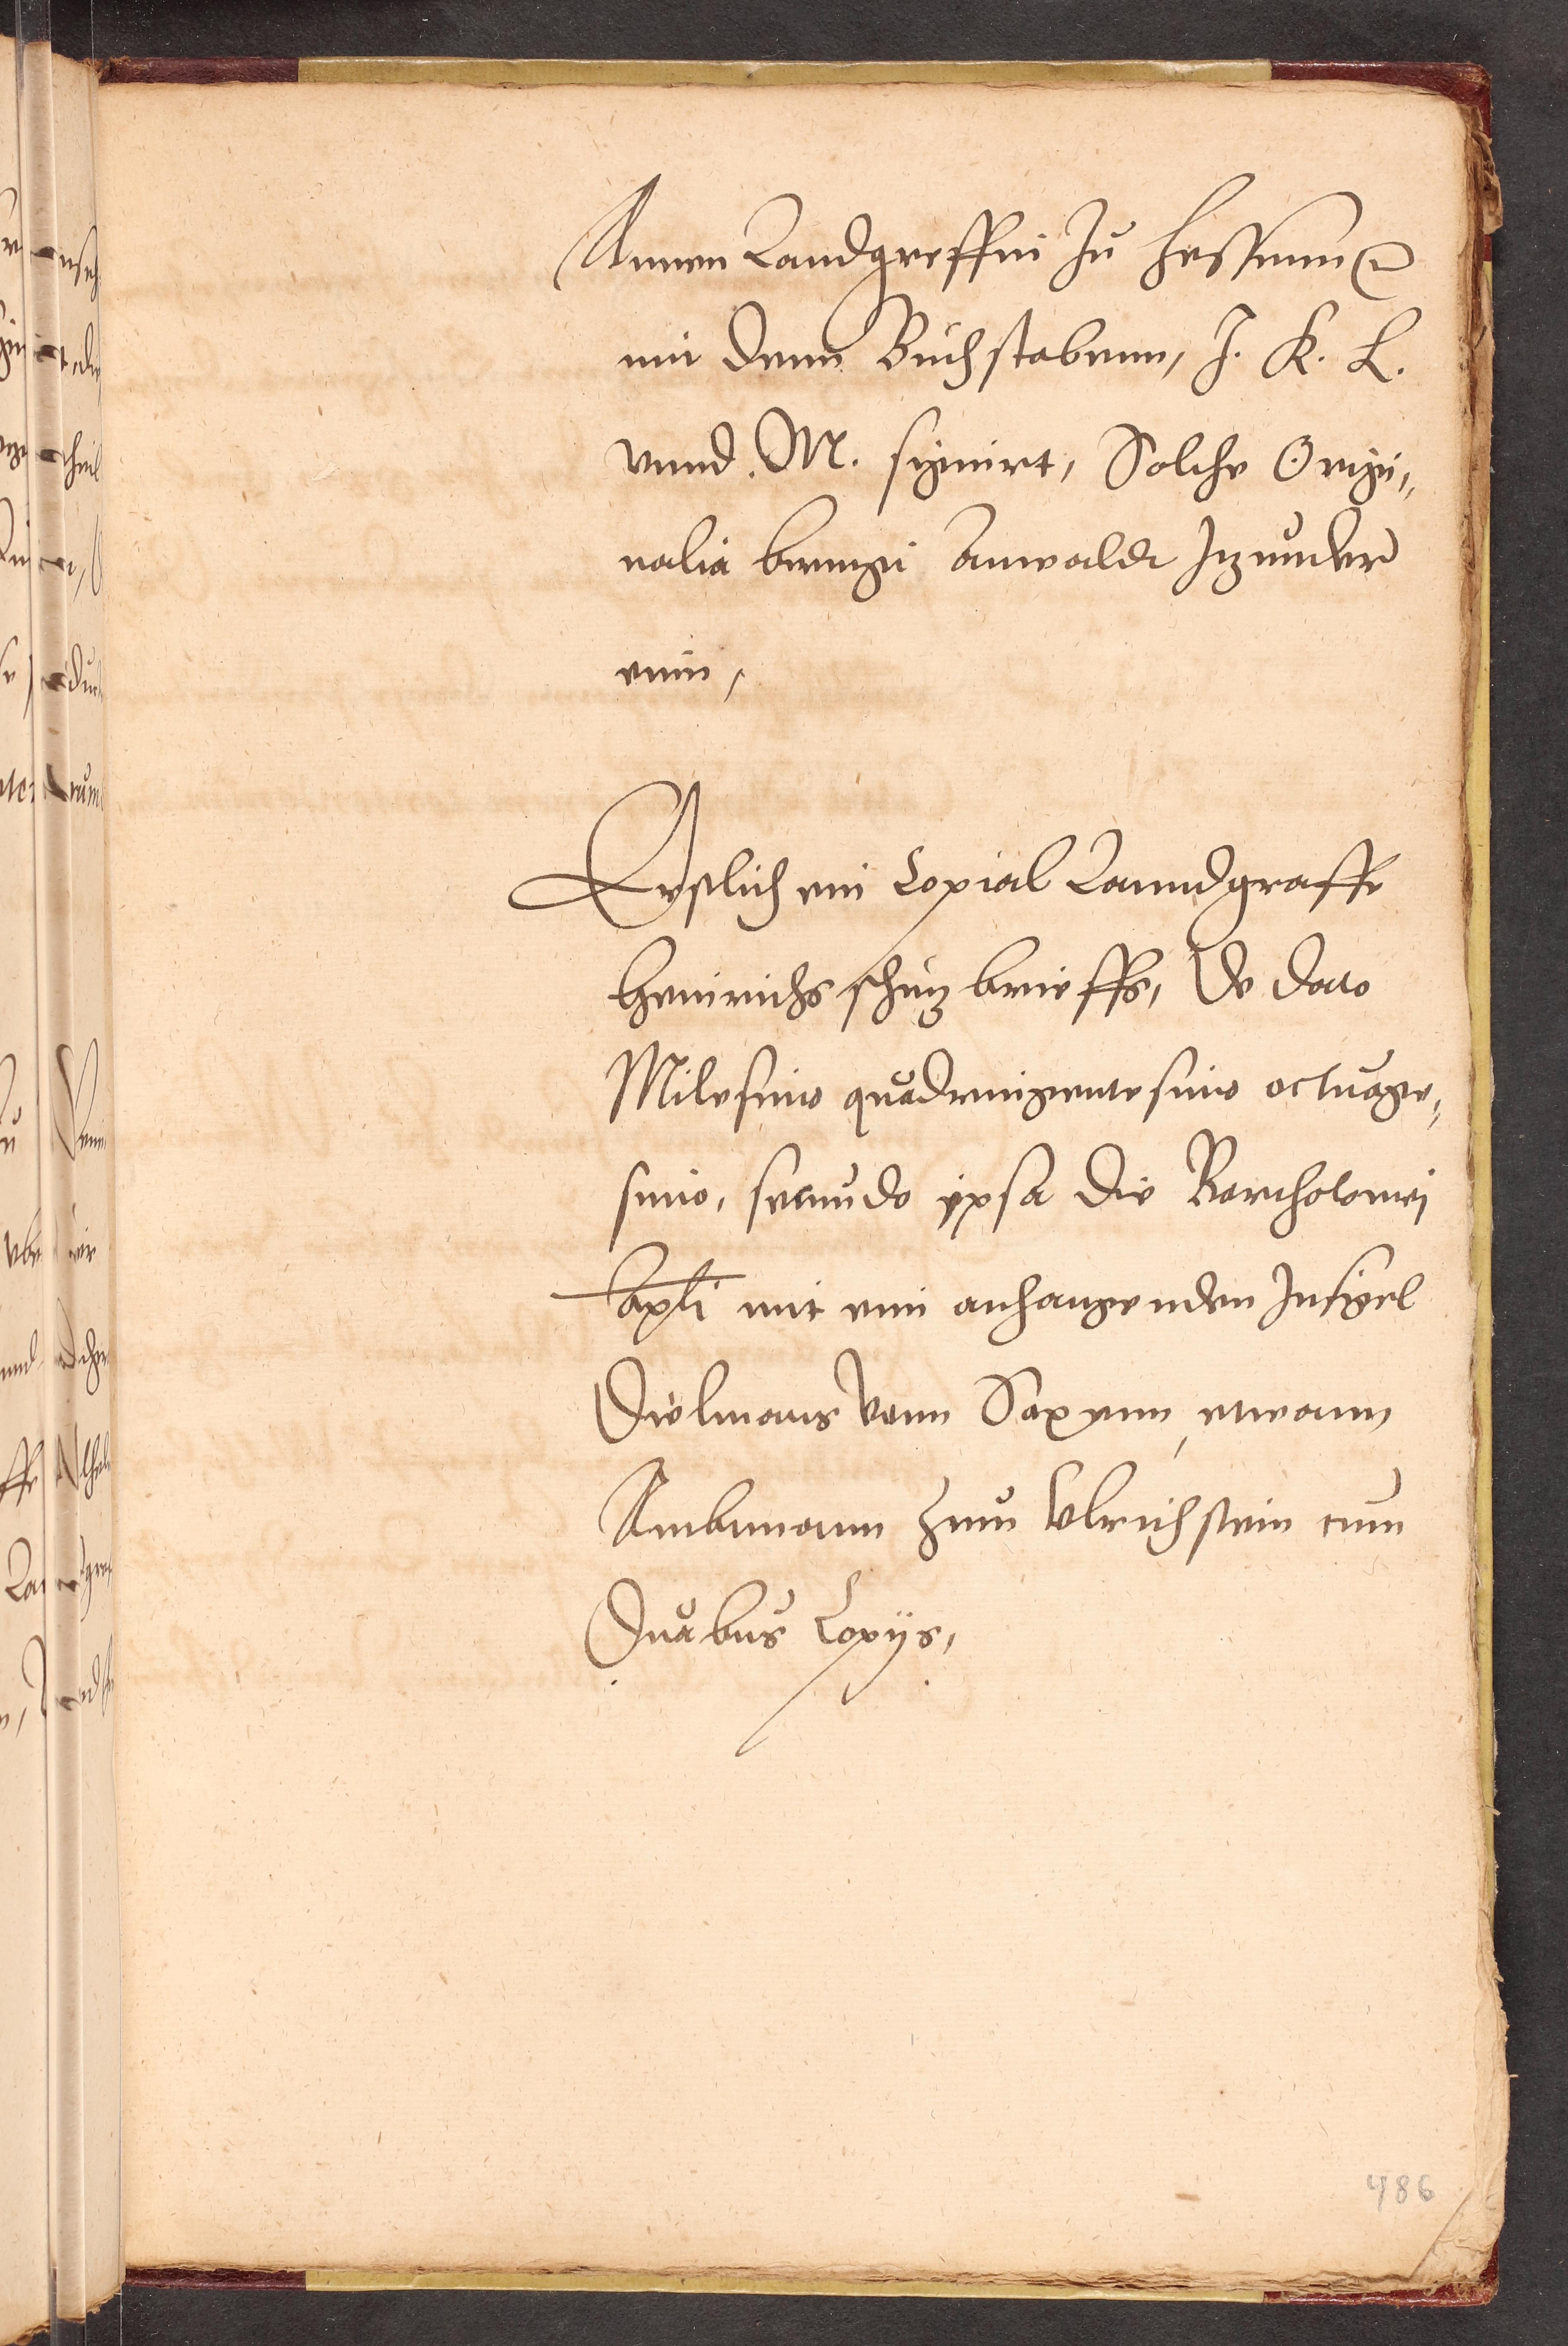 Annen Landgreffin zu Hessenn etc
mit denn Buchstabenn, J. K. L.
vnnd. M. signirt, Solche Origi„
nalia bringt Anwaldt Jtzunder
einn,
Erstlich ein Copial Lanndgraffe
Heinrichs schutz brieffs, De dato
Milesimo quadringentesimo octuage„
simo, secundo ipsa die Bartholomei
apli mit eim anhangenden Jnsigel
Dielmans vonn Saxenn, etwann
Ambtmann zum Vlrichstein cum
Duabus Copijs,
486